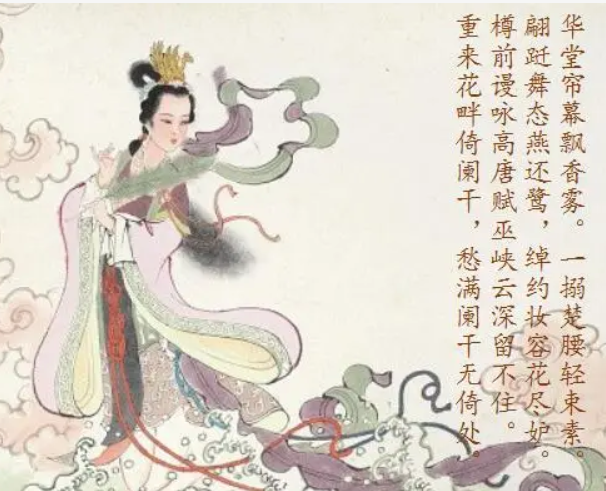 华堂帘幕飘香雾。一搦楚腰轻束素。
翩跹舞态燕还鹭，绰约妆容花尽妒。
樽前谩咏高唐赋巫峡云深留不住。
重来花畔倚阑干，愁满阑干无倚处。